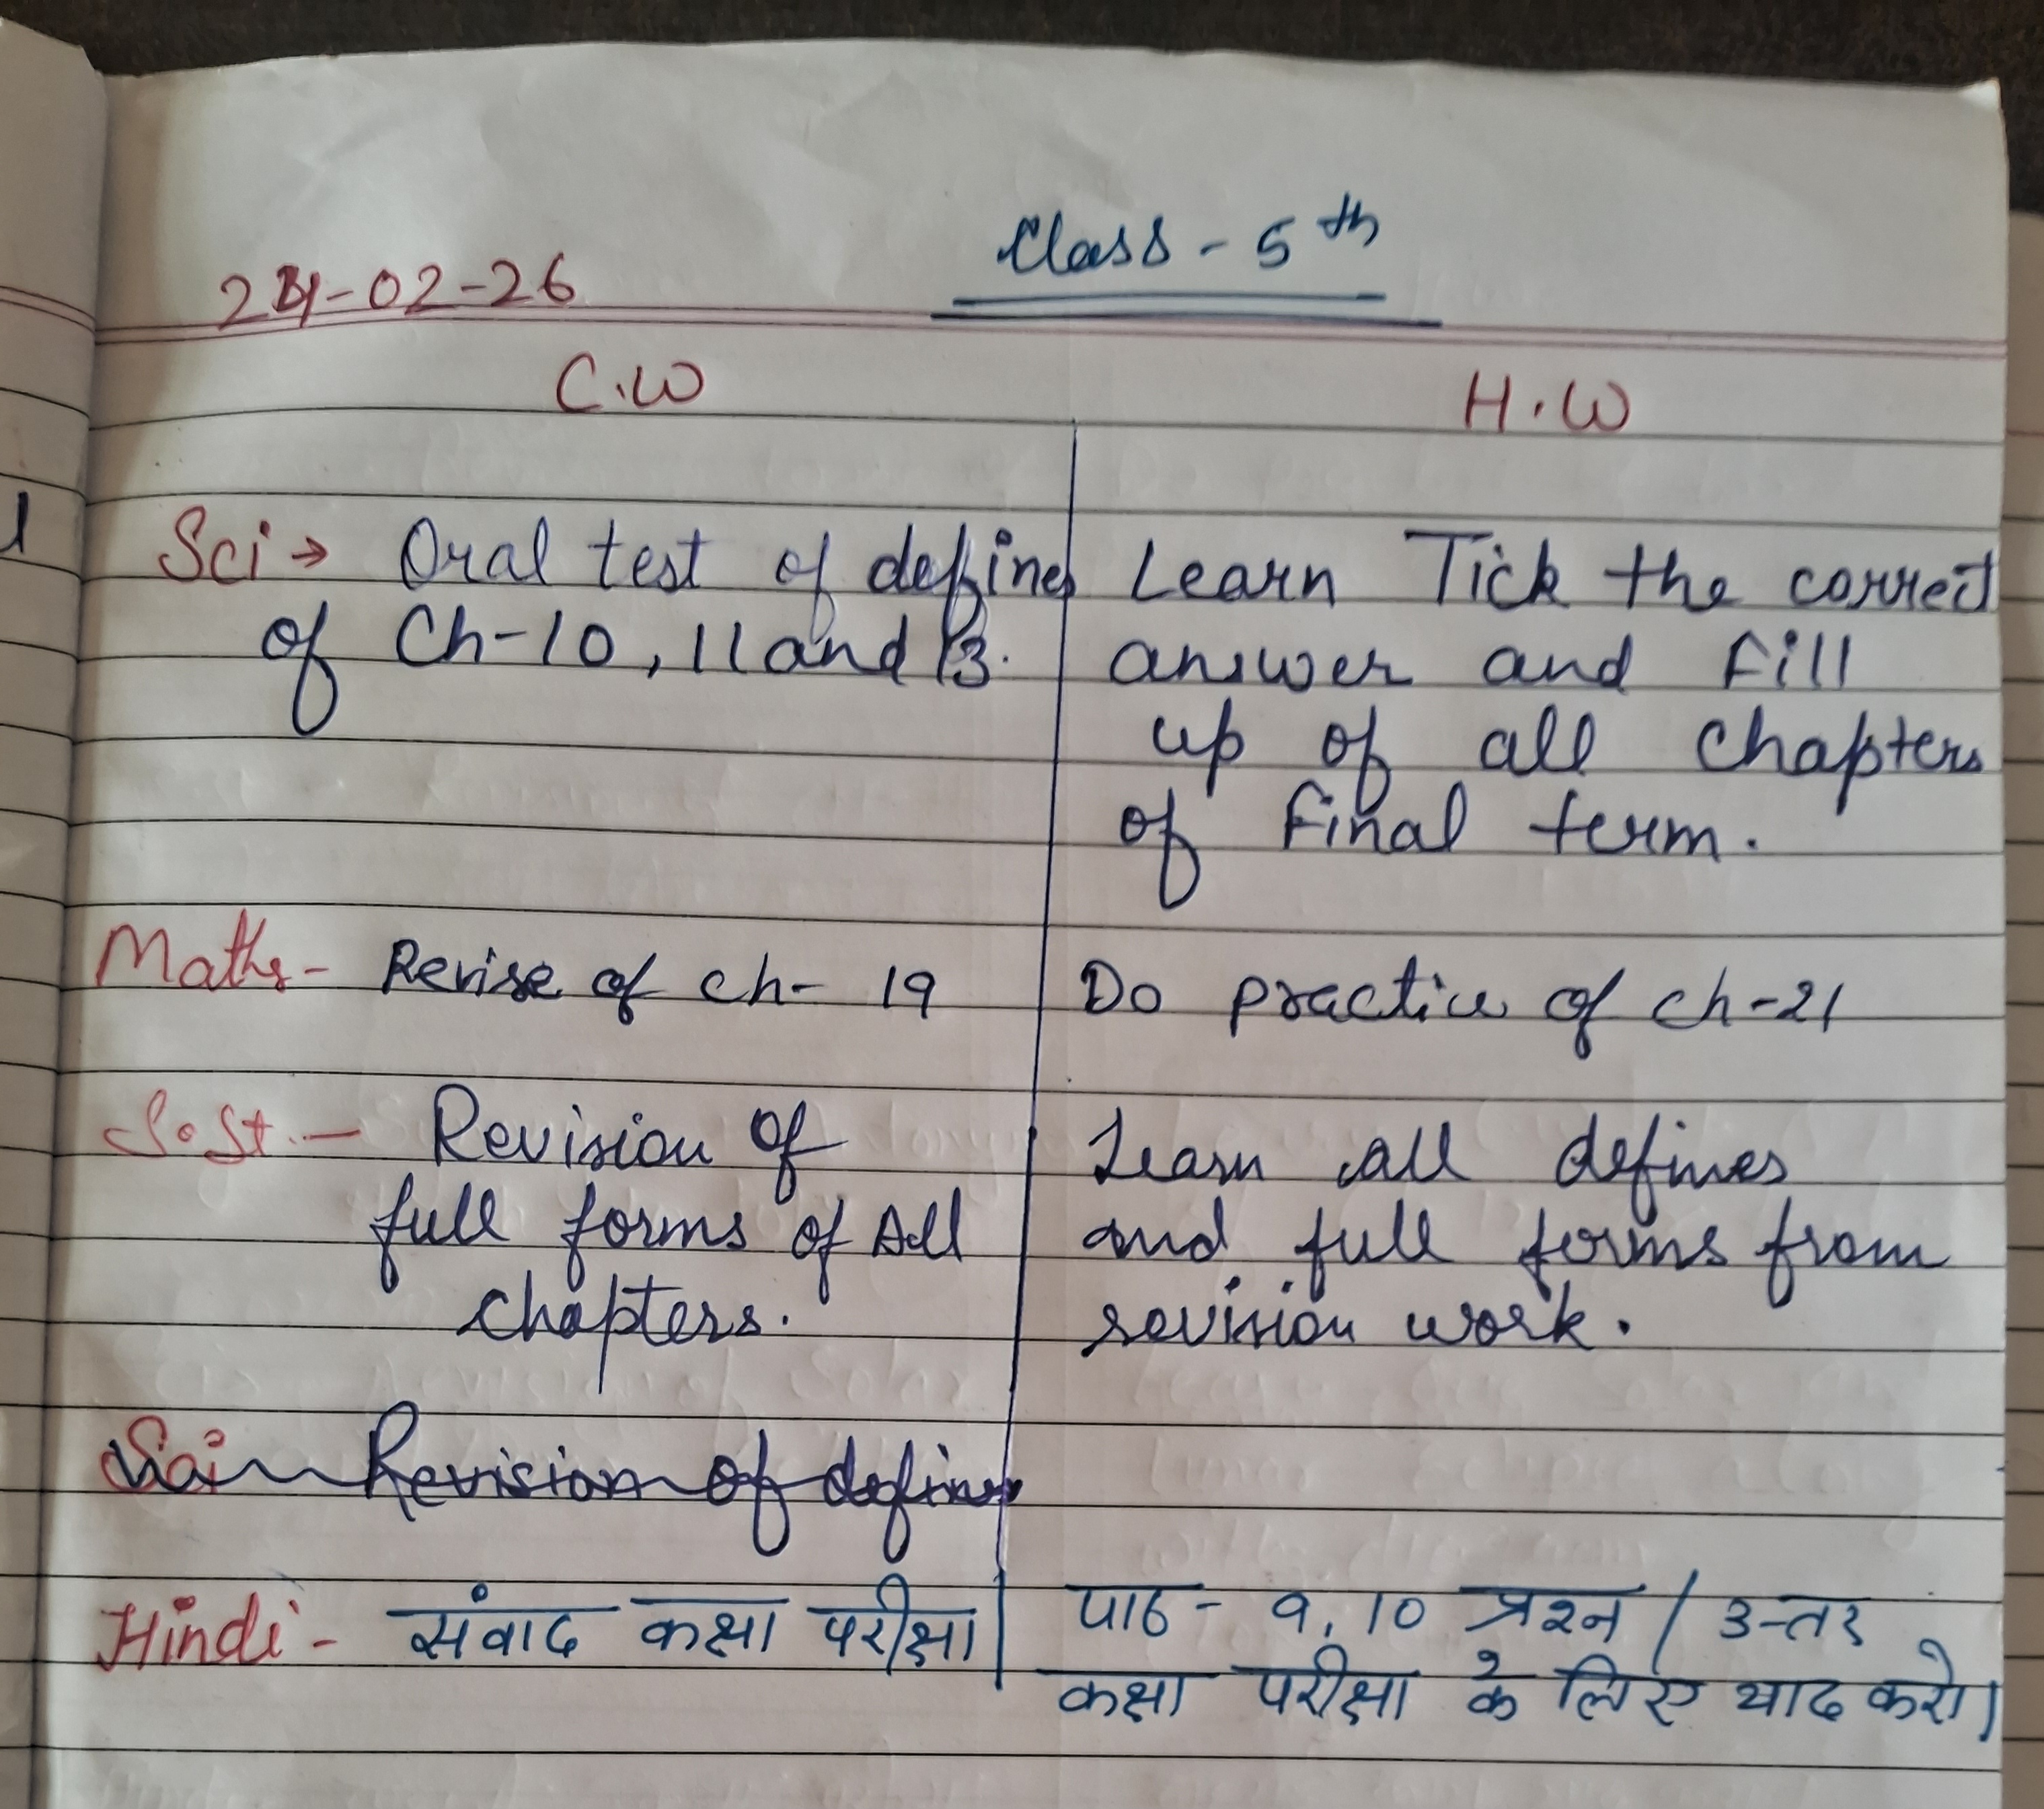 Class - 5th
24-02-26
C.W
H.W
Sci → Oral test of defines
of Ch-10, 11 and 13.
Learn Tick the correct
answer and Fill
up of all chapters
of Final term.
Maths - Revise of ch- 19
Do practice of ch-21
S.St. - Revision of
full forms of All
chapters.
Learn all defines
and full forms from
revision work.
Sci - Revision of defines
Hindi - संवाद कक्षा परीक्षा
पाठ - 9, 10 प्रश्न / उत्तर
कक्षा परीक्षा के लिए याद करो।